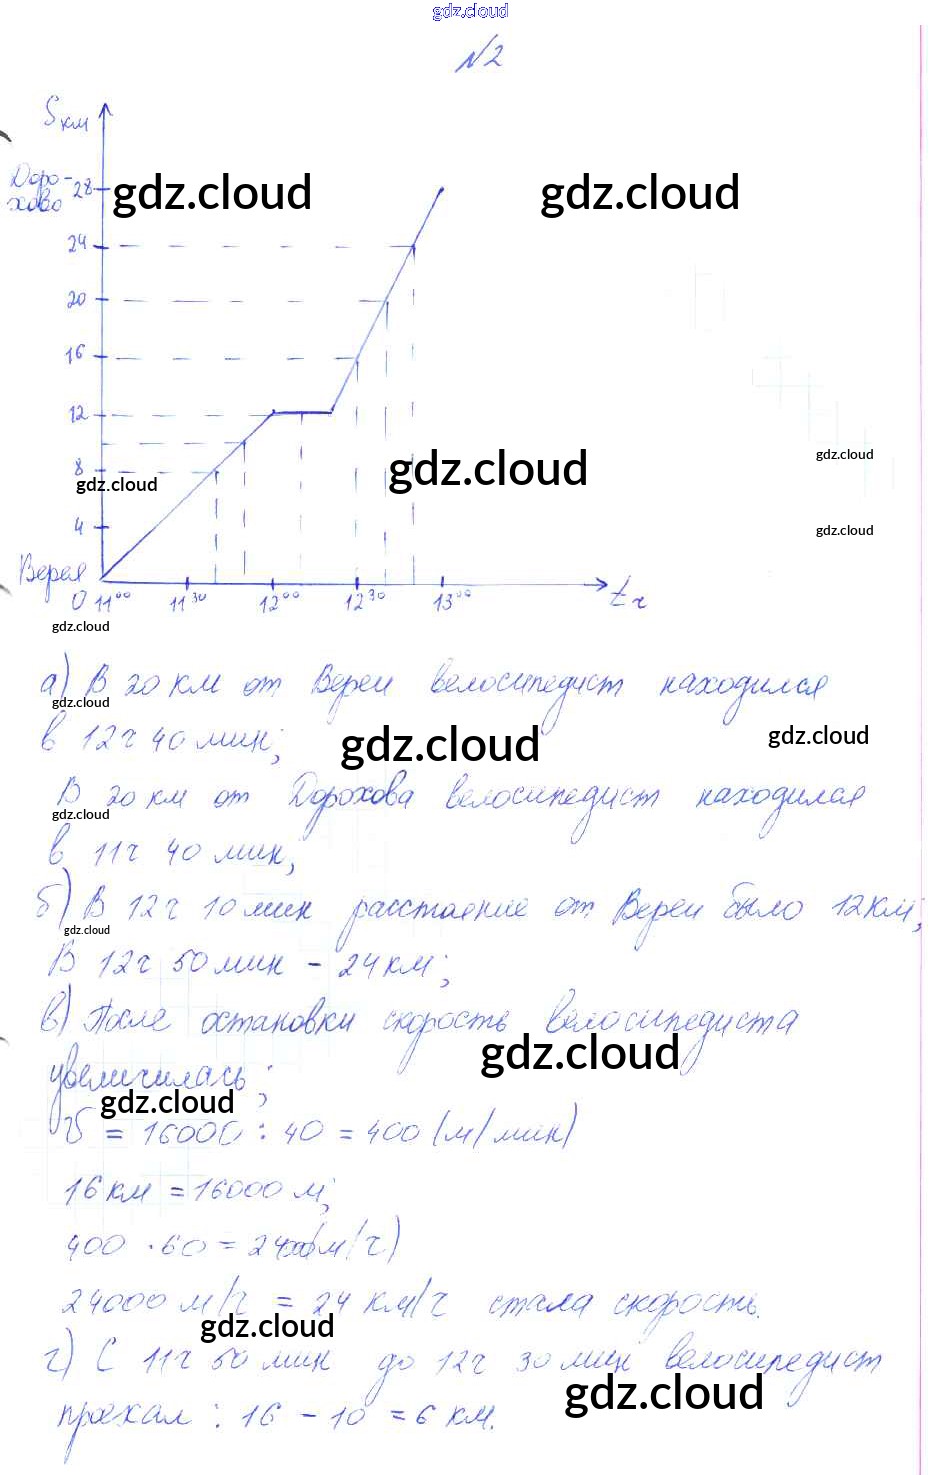 gdz.cloud
№2
S км
Доро-
хово 28
gdz.cloud gdz.cloud
24
20
16
12
gdz.cloud
8
gdz.cloud
gdz.cloud
4
gdz.cloud
Верея
0 11⁰⁰ 11³⁰ 12⁰⁰ 12³⁰ 13⁰⁰ t ч
gdz.cloud
а) В 20 км от Вереи велосипедист находился
gdz.cloud
в 12ч 40 мин;
gdz.cloud gdz.cloud
В 20 км от Дорохова велосипедист находился
gdz.cloud
в 11ч 40 мин;
б) В 12ч 10 мин расстаение от Вереи было 12 км;
gdz.cloud
В 12ч 50 мин - 24 км;
в) После остановки скорость велосипедиста
gdz.cloud
увеличилась;
gdz.cloud
V = 16000 : 40 = 400 (м/мин)
16 км = 16000 м;
400 · 60 = 24000 (м/ч)
24000 м/ч = 24 км/ч стала скорость.
gdz.cloud
г) С 11ч 50 мин до 12ч 30 мин велосипедист
gdz.cloud
проехал: 16 - 10 = 6 км.